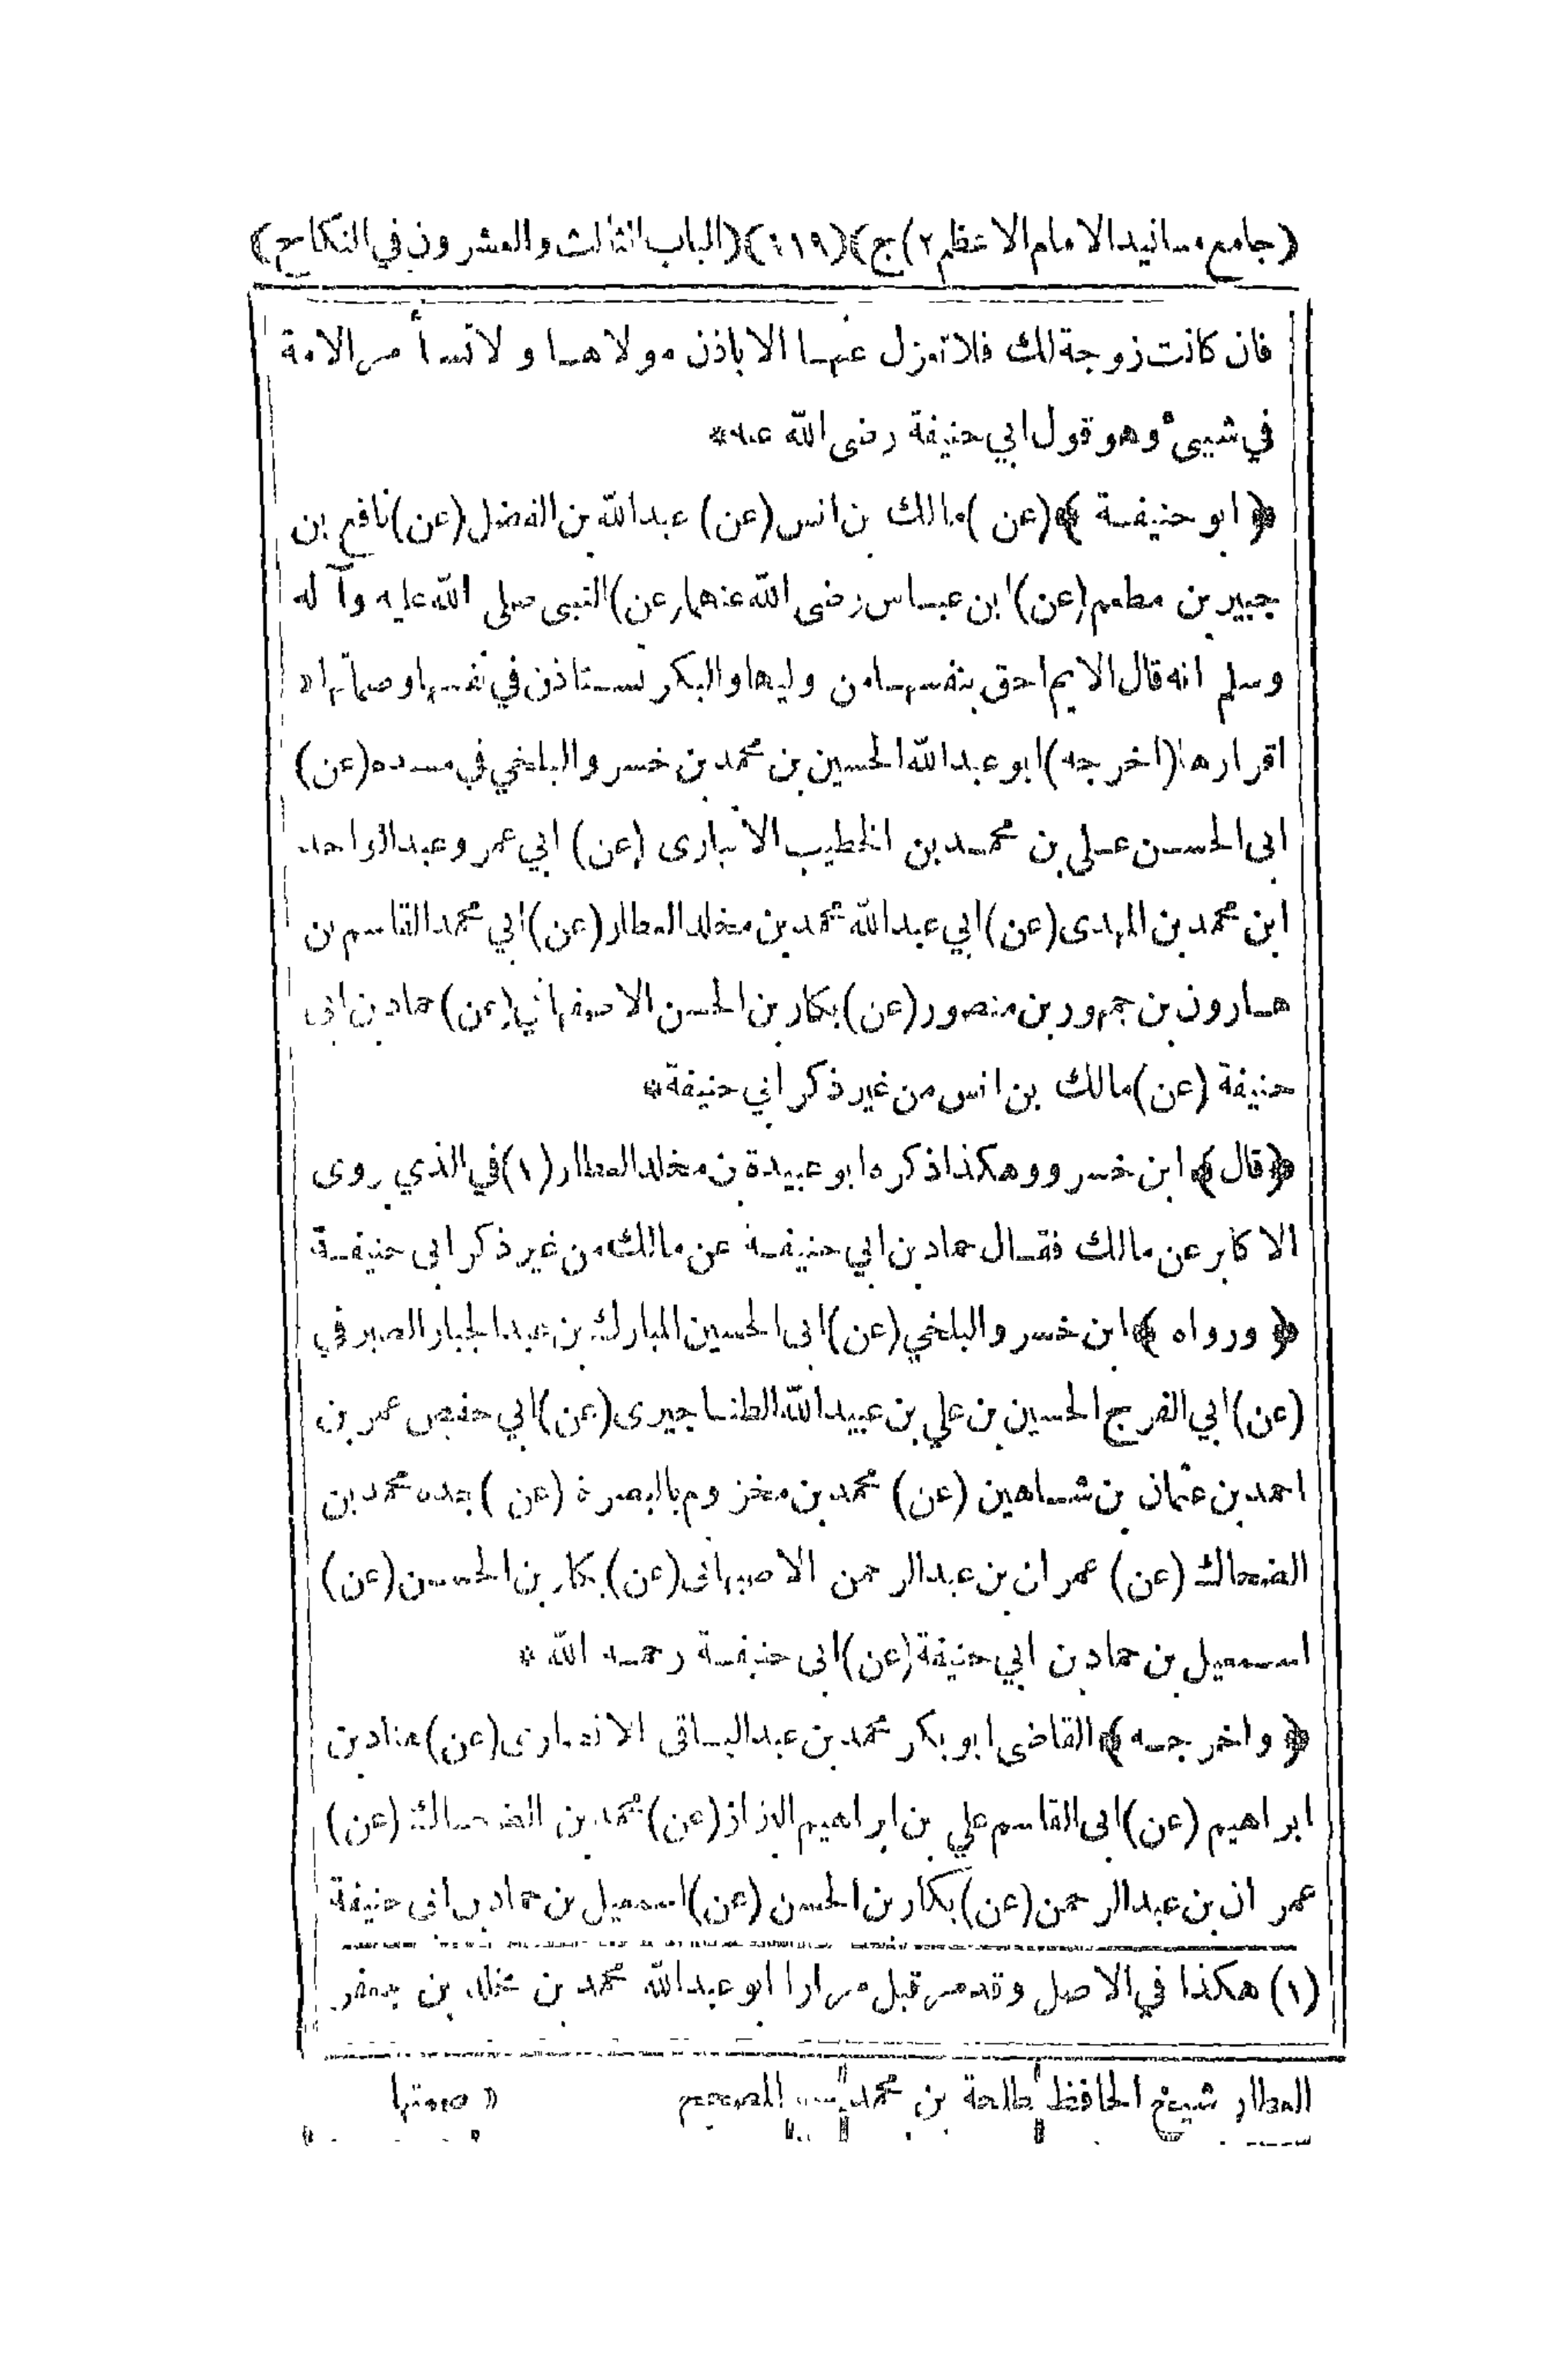 (جامع مسانيد الامام الاعظم ٢) ج) (١١٩) (الباب الثالث والعشرون في النكاح)
فان كانت زوجة لك فلا تعزل عنها الا باذن مولاها ولا تستأمر الامة
في شيئ وهو قول ابي حنيفة رضى الله عنه *
﴿ ابو حنيفة ﴾ (عن) مالك بن انس (عن) عبد الله بن الفضل (عن) نافع بن
جبير بن مطعم (عن) ابن عباس رضى الله عنهما (عن) النبى صلى الله عليه وآله
وسلم انه قال الايم احق بنفسها من وليها والبكر تستاذن في نفسها وصماتها «
اقرارها (اخرجه) ابو عبد الله الحسين بن محمد بن خسرو البلخي في مسنده (عن)
ابى الحسن على بن محمد بن الخطيب الانبارى (عن) ابي عمرو عبد الواحد
ابن محمد بن المهدى (عن) ابي عبد الله محمد بن مخلد العطار (عن) ابي محمد القاسم بن
هارون بن جمهور بن منصور (عن) بكار بن الحسن الاصفهاني (عن) حماد بن ابى
حنيفة (عن) مالك بن انس من غير ذكر ابي حنيفة *
﴿ قال ﴾ ابن خسرو وهكذا ذكره ابو عبيدة بن مخلد العطار (١) في الذي روى
الاكابر عن مالك فقال حماد بن ابي حنيفة عن مالك من غير ذكر ابى حنيفة
﴿ ورواه ﴾ ابن خسرو البلخي (عن) ابى الحسين المبارك بن عبد الجبار الصيرفي
(عن) ابي الفرج الحسين بن علي بن عبيد الله الطناجيرى (عن) ابي حفص عمر بن
احمد بن عثمان بن شاهين (عن) محمد بن مخزوم بالبصرة (عن) جده محمد بن
الضحاك (عن) عمران بن عبد الرحمن الاصبهانى (عن) بكار بن الحسن (عن)
اسمعيل بن حماد بن ابي حنيفة (عن) ابى حنيفة رحمه الله *
﴿ واخرجه ﴾ القاضى ابو بكر محمد بن عبد الباقى الانصارى (عن) هناد بن
ابراهيم (عن) ابى القاسم علي بن ابراهيم البزاز (عن) محمد بن الضحاك (عن)
عمران بن عبد الرحمن (عن) بكار بن الحسن (عن) اسمعيل بن حماد بن ابى حنيفة
(١) هكذا في الاصل وقد مر قبل مرارا ابو عبد الله محمد بن مخلد بن جعفر
العطار شيخ الحافظ طلحة بن محمد المصحح « صمتها